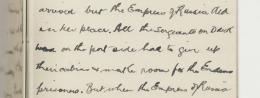 arrived but the Empress of Russia did
in her place. All the Sergeants on Dark
on the port side had to give up
their cabins & make room for the Emden
prisoners. But when the Empress of Russia